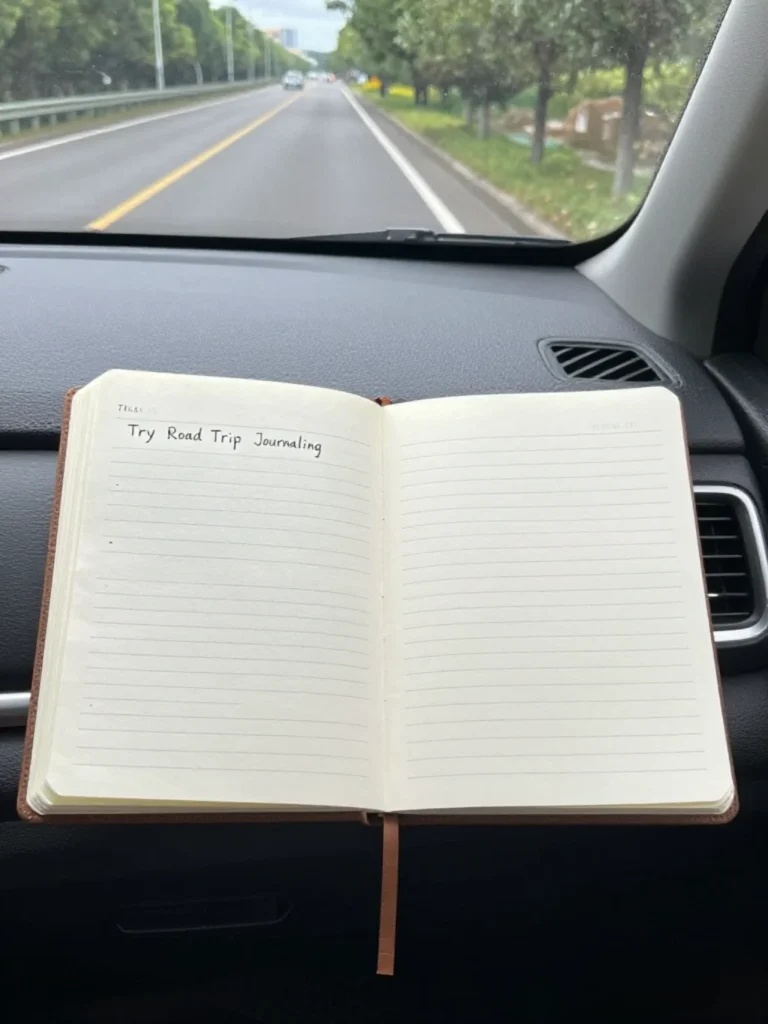 Try Road Trip Journaling